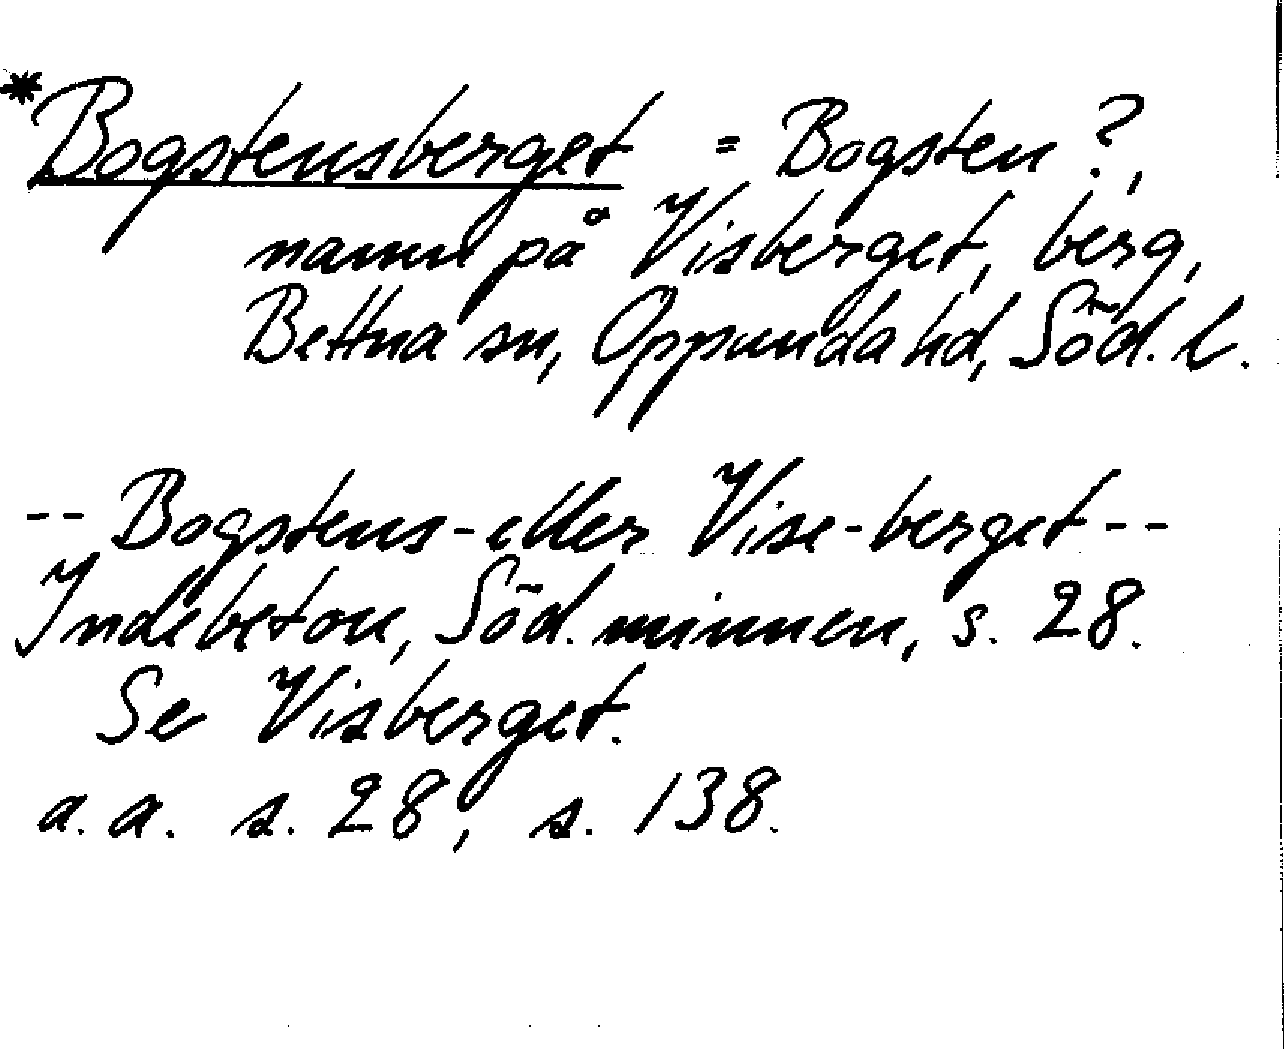 *Bogstensberget = Bogsten?,
namn på Visberget, berg,
Bettna sn, Oppunda hd, Söd. l.
-- Bogstens- eller Vise-berget --
Indebetou, Söd. minnen, s. 28.
Se Visberget.
a.a. s. 28, s. 138.